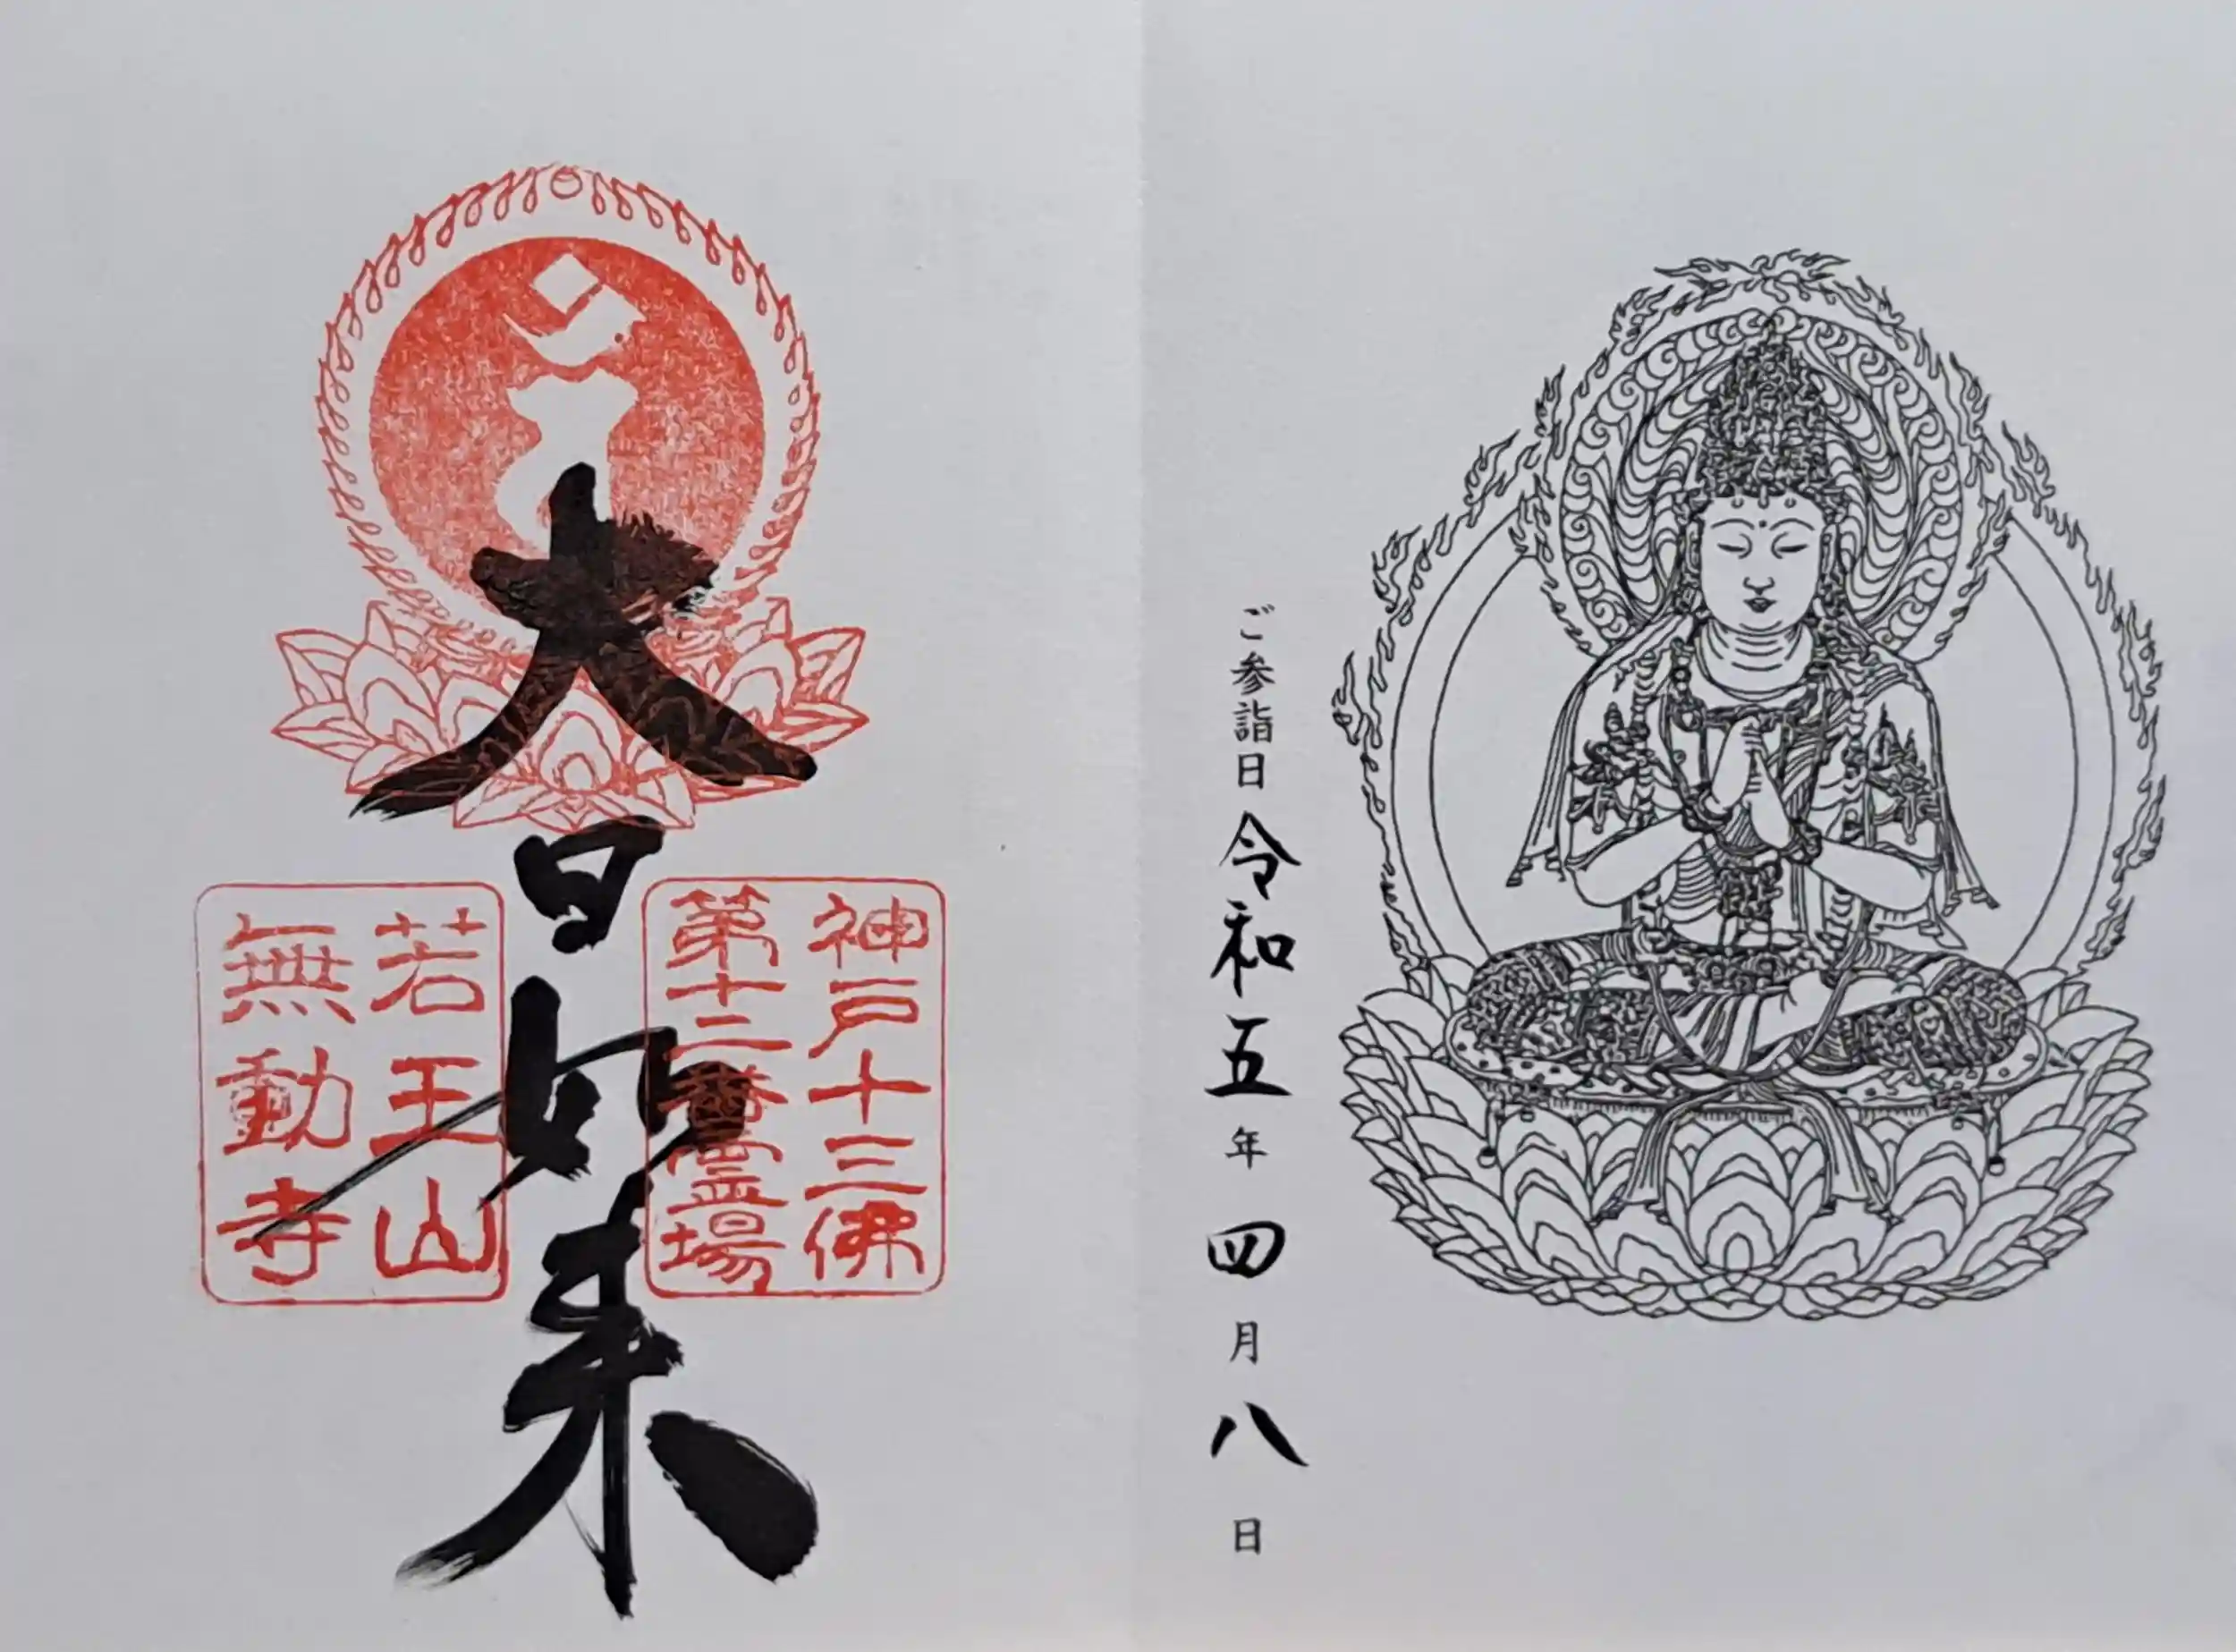 ご参詣日 令和五年 四月 八日
大日如来
神戸十三佛
第十二番霊場
若王山
無動寺